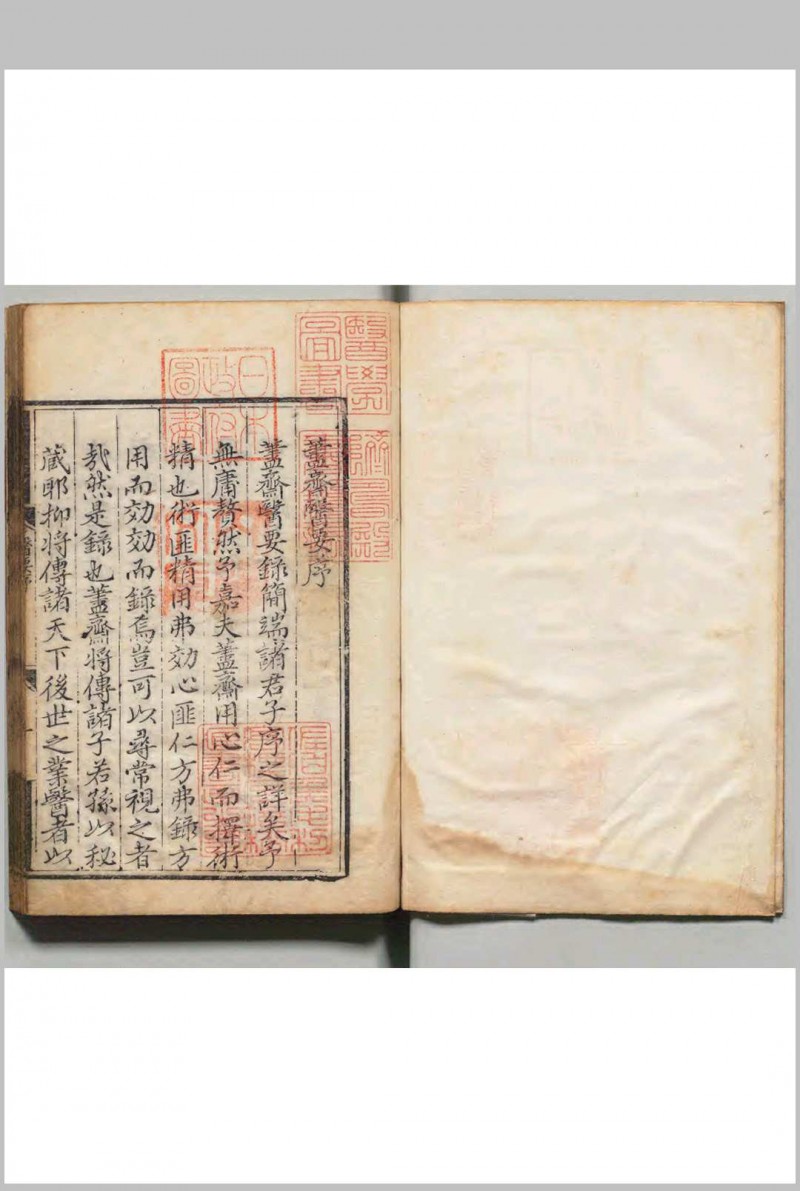 藎齋醫要序
藎齋醫要錄簡端諸君子序之詳矣予
無庸贅然予嘉夫藎齋用心仁而擇術
精也術匪精用弗効心匪仁方弗錄方
用而効効而錄焉豈可以尋常視之者
哉然是錄也藎齋將傳諸子若孫以秘
藏耶抑將傳諸天下後世之業醫者以
醫學圖書
日本政府圖書